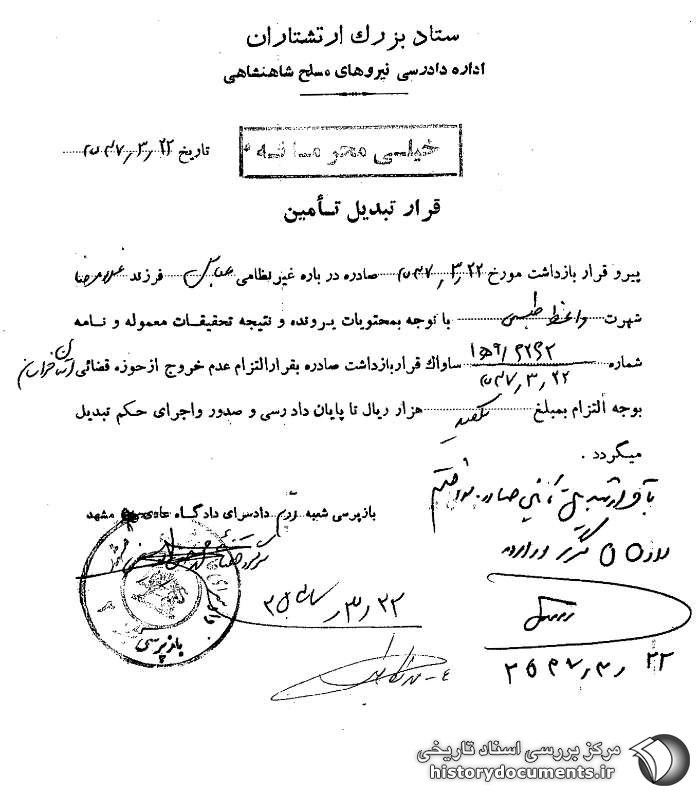 ستاد بزرك ارتشتاران
اداره دادرسی نیروهای مسلح شاهنشاهی
خیلی محرمانه
تاریخ ۲۵۳۷٫۳٫۲۲
قرار تبدیل تأمین
پیرو قرار بازداشت مورخ ۲۵۳۷٫۳٫۲۲ صادره در باره غیرنظامی عباس فرزند غلامرضا
شهرت واعظ طبسی با توجه بمحتویات پرونده و نتیجه تحقیقات معموله و نامه
شماره ساواك قرار بازداشت صادره بقرار التزام عدم خروج از حوزه قضائی استان خراسان
بوجه التزام بمبلغ یکصد هزار ریال تا پایان دادرسی و صدور واجرای حکم تبدیل
میگردد .
بازپرسی شعبه دادسرای دادگاه عادی مشهد
با قرار تأمین صادره موافقم
بازپرسی
مرکز بررسی اسناد تاریخی
historydocuments.ir